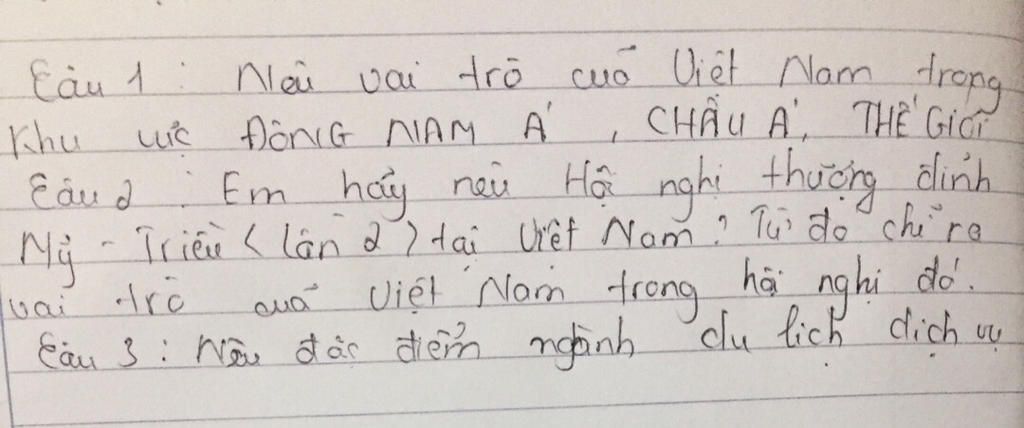 Câu 1 : Nêu vai trò của Việt Nam trong
khu vực ĐÔNG NAM Á , CHÂU Á, THẾ GIỚI
Câu 2 : Em hãy nêu Hội nghị thượng đỉnh
Mỹ - Triều (lần 2) tại Việt Nam? Từ đó chỉ ra
vai trò của Việt Nam trong hội nghị đó.
Câu 3 : Nêu đặc điểm ngành du lịch dịch vụ